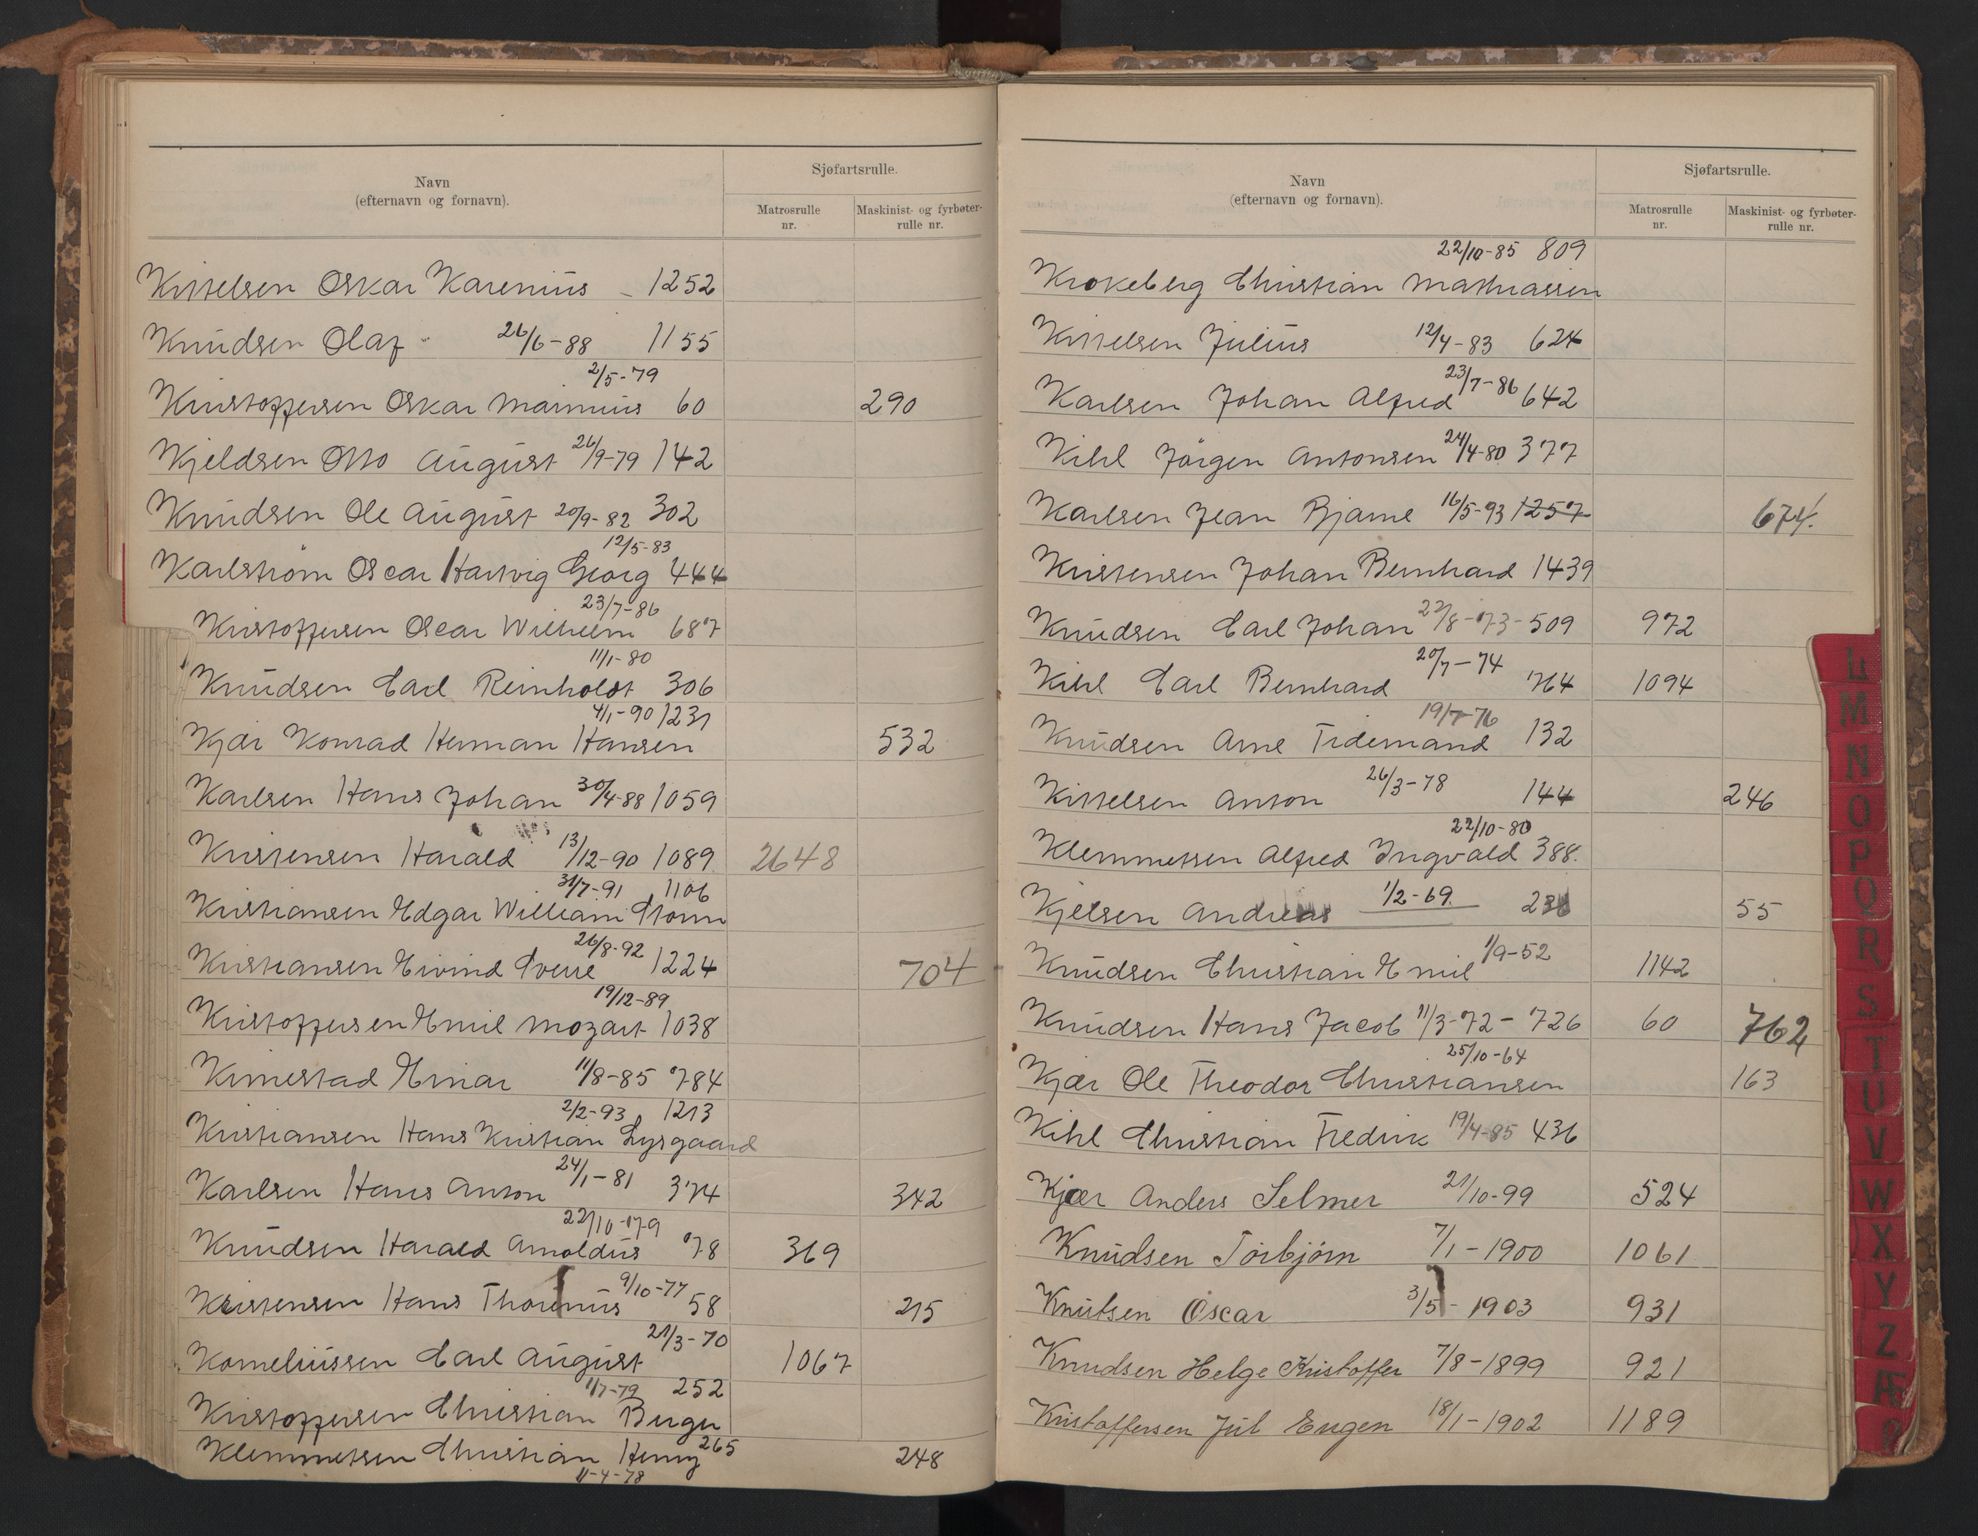 Navn
(efternavn og fornavn).
Sjøfartsrulle.
Matrosrulle nr.
Maskinist- og fyrbøter-rulle nr.
Kittelsen Oskar Karenius – 1252
Knudsen Olaf 26/6-88 1155
2/5-79
Kristoffersen Oskar Marinius 60 290
Kjeldsen Otto August 26/9-79 142
Knudsen Ole August 20/9-82 302
12/5-83
Karlstrøm Oscar Hartvig Georg 444
23/7-86
Kristoffersen Oscar Wilhelm 687
11/1-80
Knudsen Carl Reinholdt 306
4/1-90 1231
Kjær Konrad Herman Hansen 532
Karlsen Hans Johan 30/4-88 1059
Kristensen Harald 13/12-90 1089 2648
31/7-91 1106
Kristiansen Edgar William Storm
26/8-92
Kristiansen Eivind Sverre 1224 704
19/12-89
Kristoffersen Emil Mozart 1038
Kimestad Einar 11/8-85 784
2/2-93 1213
Kristiansen Hans Kristian Lysgaard
Karlsen Hans Anton 24/1-81 374 342
22/10-79
Knudsen Harald Arnoldus 78 369
9/10-77
Kristensen Hans Thorenius 58 215
21/3-70
Korneliussen Carl August 1067
1/7-79 252
Kristoffersen Christian Birger
Klemmetsen Christian Henry 265 248
11-4-78
Navn
(efternavn og fornavn).
Sjøfartsrulle.
Matrosrulle nr.
Maskinist- og fyrbøter-rulle nr.
22/10-85 809
Krokeberg Christian Mathiassen
Kittelsen Julius 12/4-83 624
Karlsen Johan Alfred 23/7-86 642
Kihl Jørgen Antonsen 24/4-80 377
Karlsen Jean Bjarne 16/5-93 1257 674.
Kristensen Johan Bernhard 1439
Knudsen Carl Johan 22/8-73-509 972
Kihl Carl Bernhard 20/7-74 764 1094
19/7-76
Knudsen Arne Tidemand 132
Kittelsen Anton 26/3-78 144 246
22/10-80
Klemmetsen Alfred Ingvald 388.
Kjelsen Andreas 1/2-69 55
Knudsen Christian Emil 1/9-52 1142
Knudsen Hans Jacob 11/3-72-726 60 762
25/10-64
Kjær Ole Theodor Christiansen 163
Kihl Christian Fredrik 19/4-85 436
Kjær Anders Selmer 21/10-99 524
Knudsen Torbjørn 7/1-1900 1061
Knutsen Oscar 3/5-1903 931
Knudsen Helge Kristoffer 7/8-1899 921
Kristoffersen Jul Eugen 18/1-1902 1189
L
M
N
O
P
Q
R
S
T
U
V
W
X
Y
Z
Æ
Ø